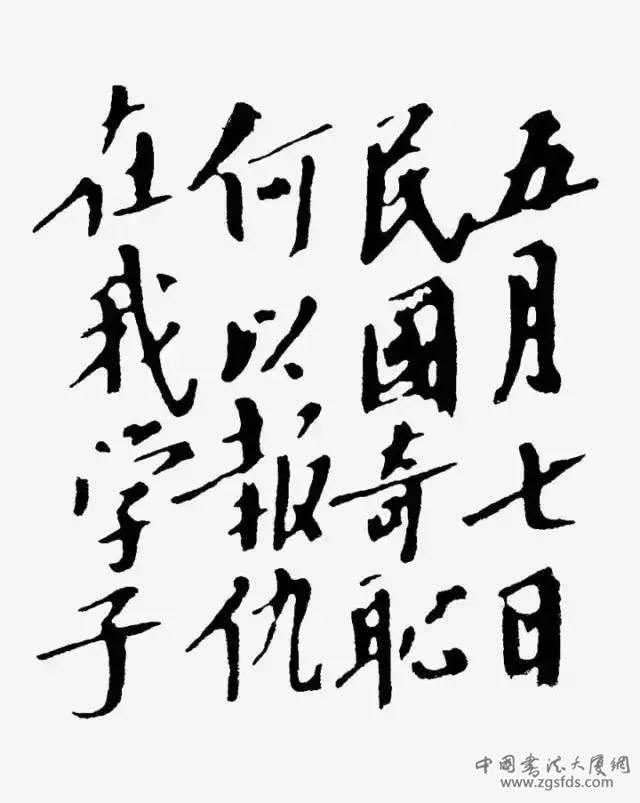 五月七日
民國奇恥
何以報仇
在我学子
中国书法大厦網
www.zgsfds.com